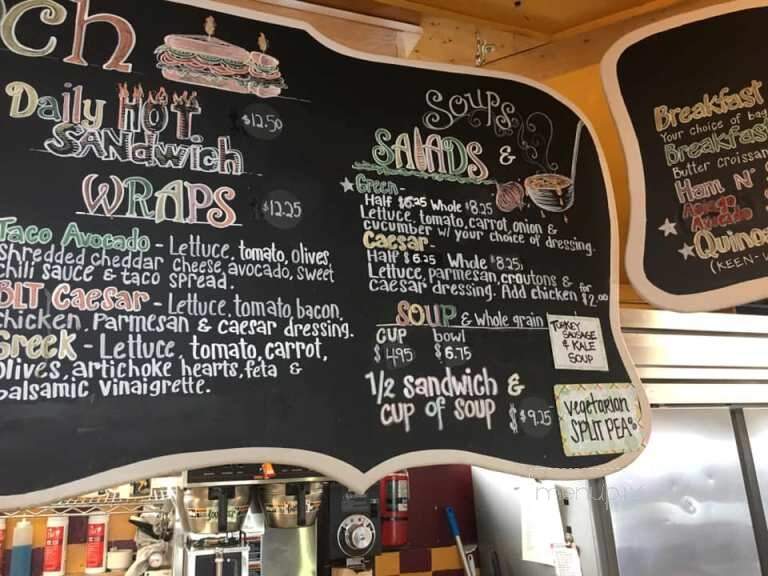 ch
Daily HOT
SANDWich
$12.50
WRAPS
$12.25
Taco Avocado - Lettuce, tomato, olives,
shredded cheddar cheese, avocado, sweet
chili sauce & taco spread.
BLT Caesar - Lettuce, tomato, bacon,
chicken, Parmesan & caesar dressing.
Greek - Lettuce, tomato, carrot,
olives, artichoke hearts, feta &
balsamic vinaigrette.
Soups
SALADS &
Green -
Half $6.25 Whole $8.25
Lettuce, tomato, carrot, onion &
cucumber w/ your choice of dressing.
Caesar -
Half $6.25 Whole $8.25
Lettuce, parmesan, croutons &
caesar dressing. Add chicken for $2.00
SOUP & whole grain
cup bowl
$4.95 $6.75
1/2 sandwich &
cup of soup $9.25
TURKEY
SAUSAGE
& KALE
SOUP
vegetarian
SPLIT PEA
Breakfast
Your choice of bag
Breakfast
Butter Croissan
Ham N'
Avocado
Quinoa
(KEEN-W